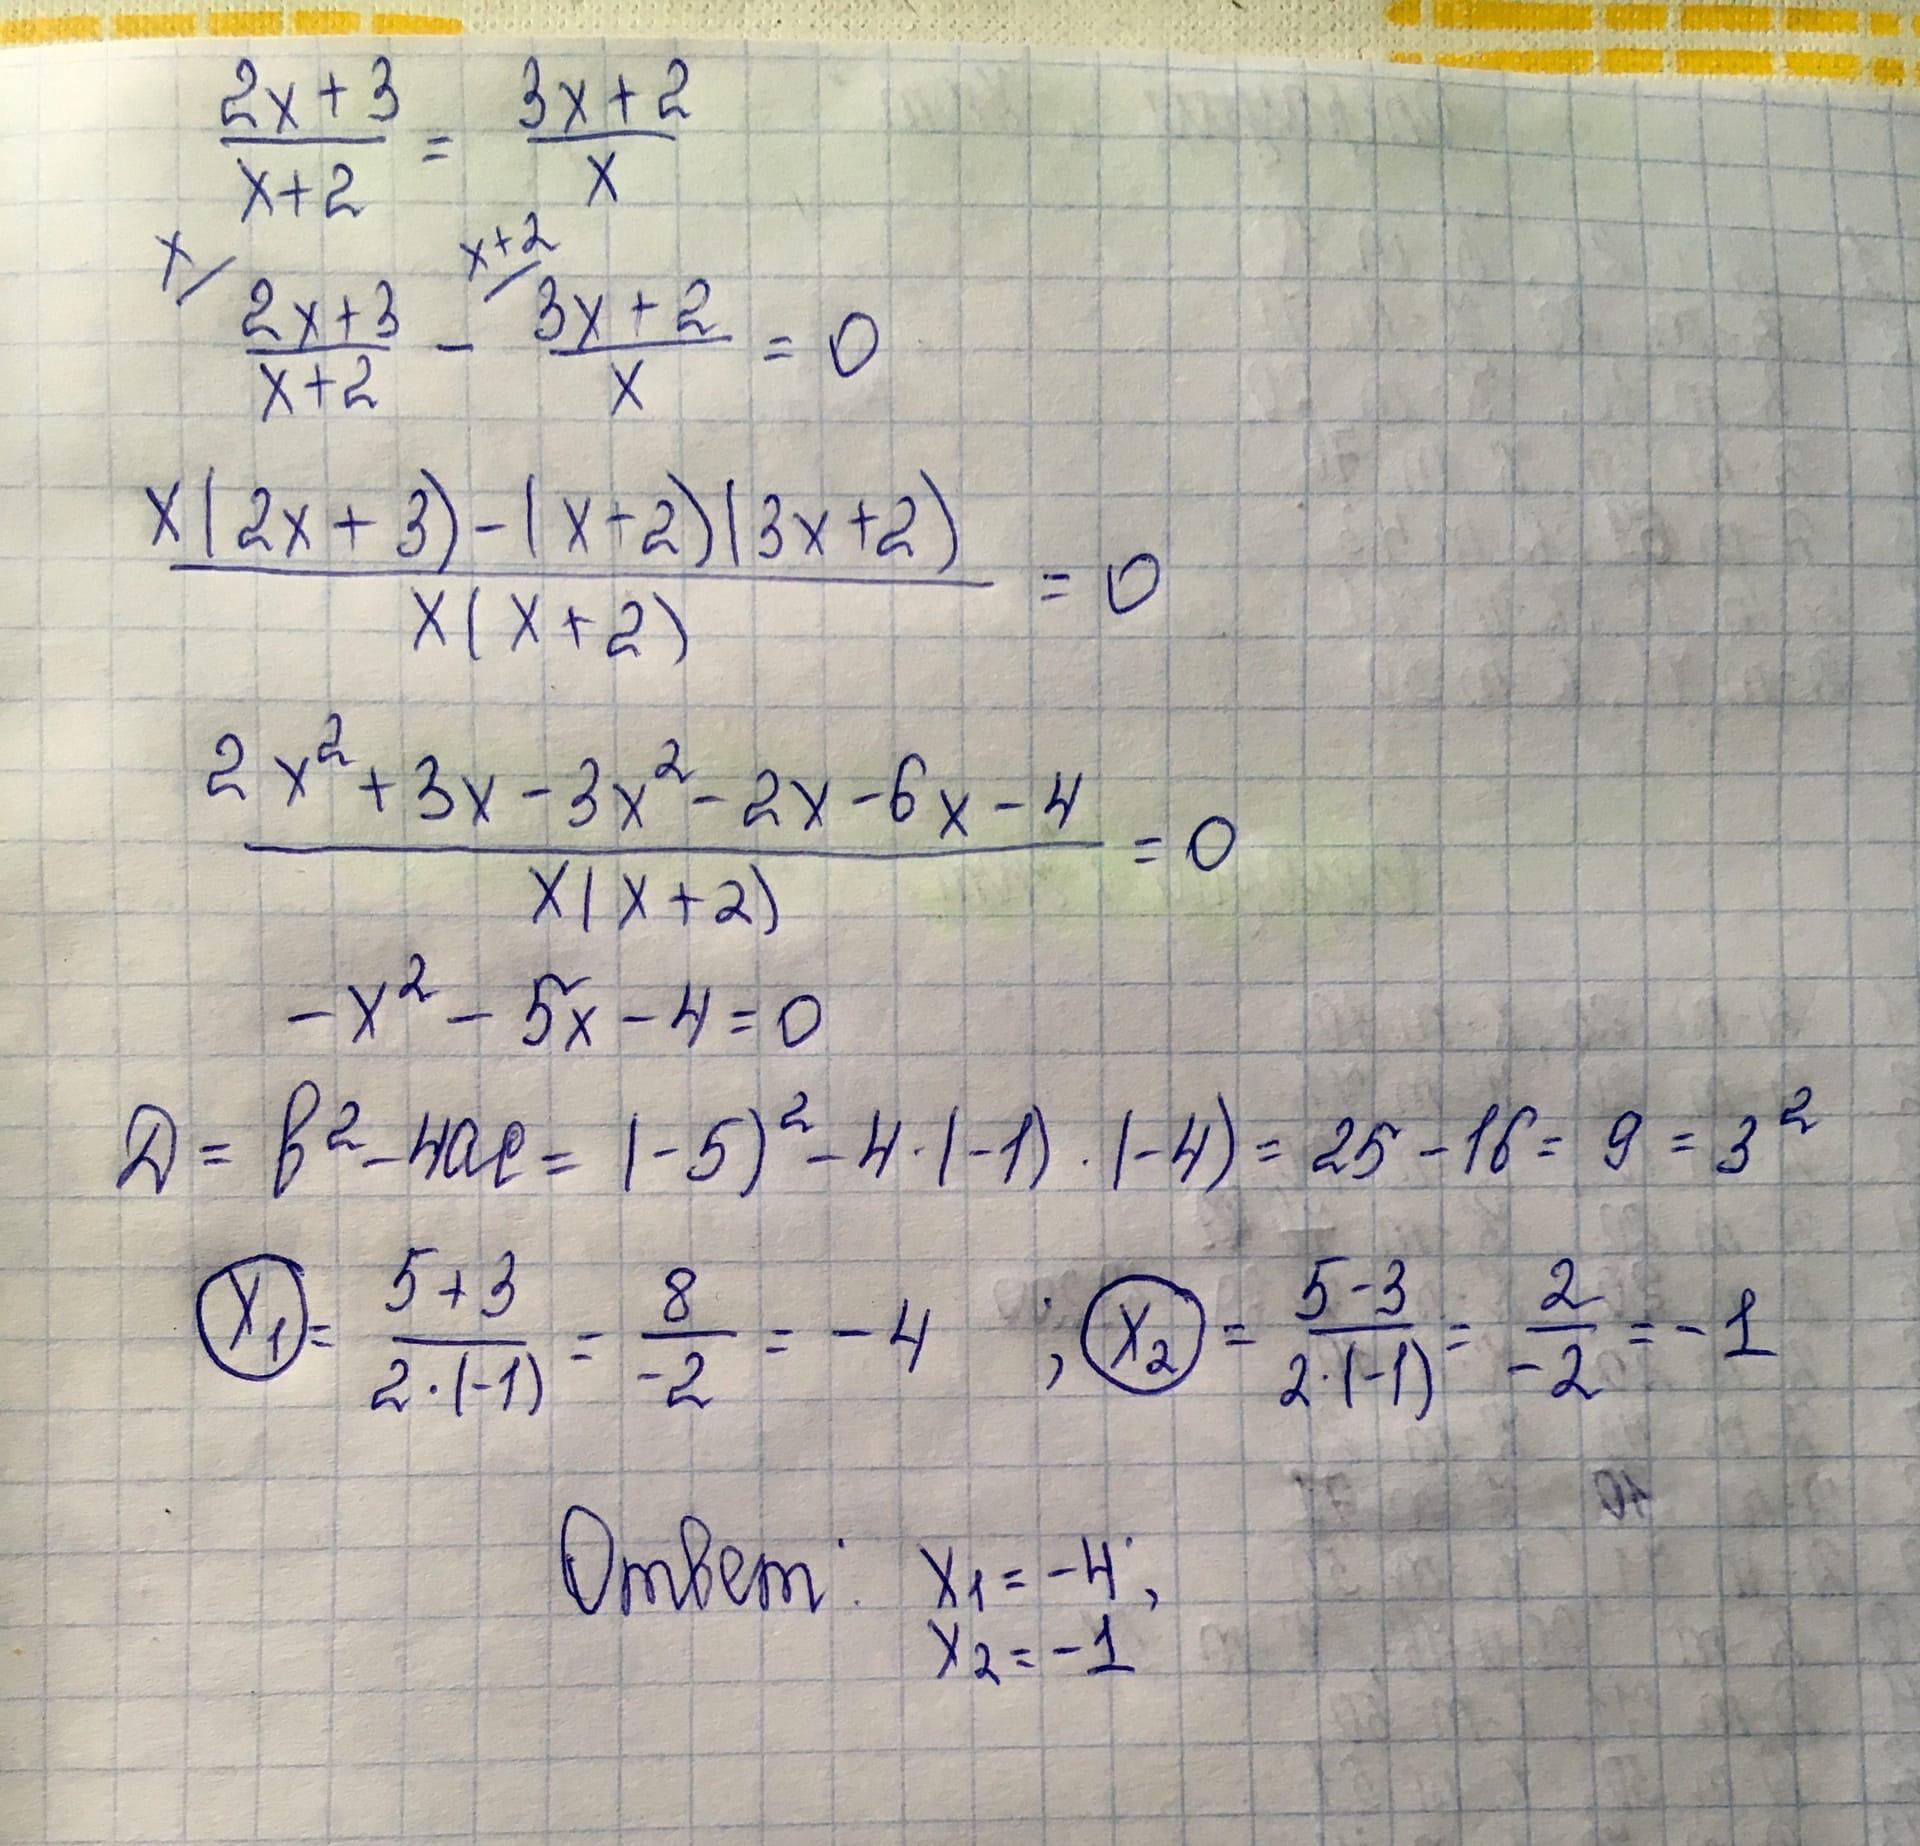 (2x+3)/(x+2) = (3x+2)/x
x/ (2x+3)/(x+2) - x+2/ (3x+2)/x = 0
(x(2x+3)-(x+2)(3x+2))/(x(x+2)) = 0
(2x²+3x-3x²-2x-6x-4)/(x(x+2)) = 0
-x² - 5x - 4 = 0
D = b² - 4ac = (-5)² - 4·(-1)·(-4) = 25 - 16 = 9 = 3²
x₁ = (5+3)/(2·(-1)) = 8/(-2) = -4 ; x₂ = (5-3)/(2·(-1)) = 2/(-2) = -1
Ответ: x₁ = -4;
x₂ = -1